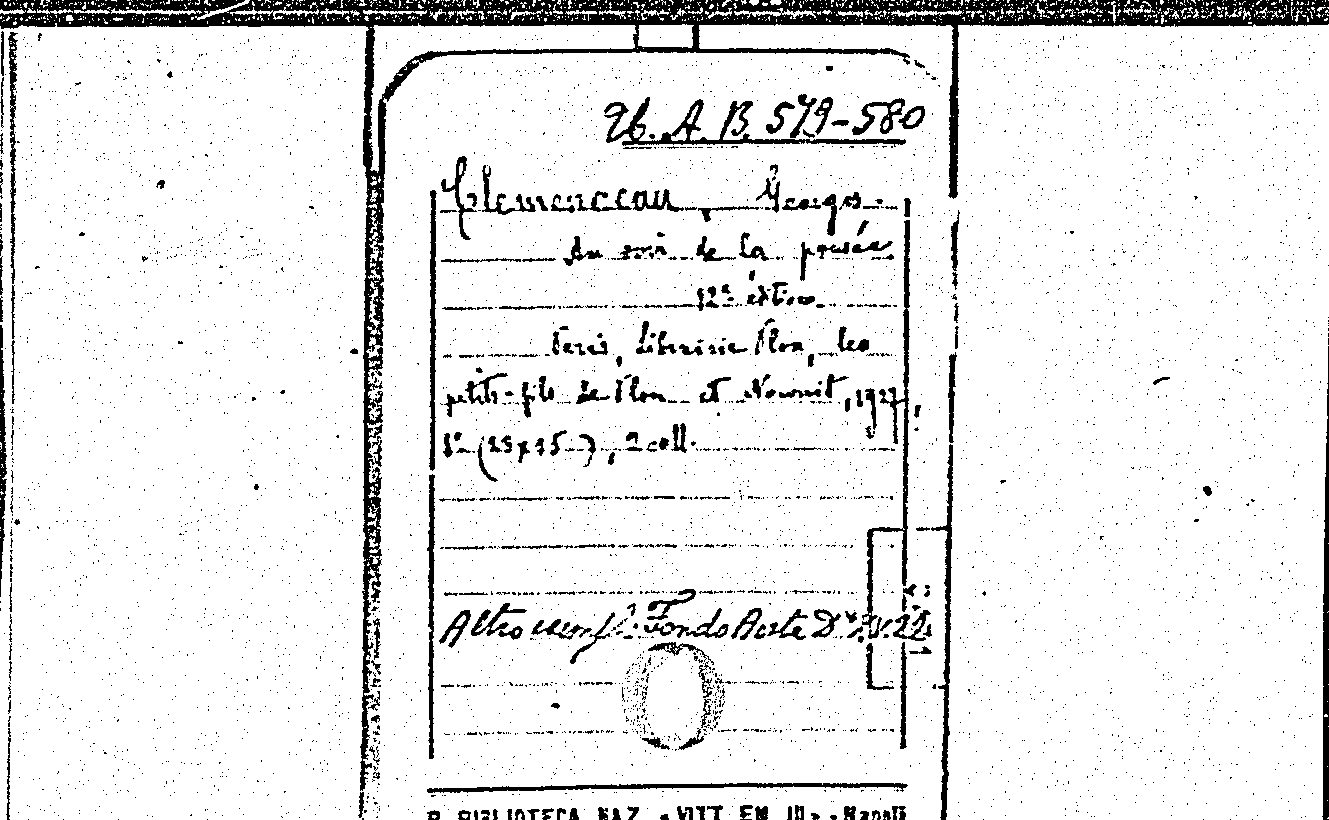 A. B. 579-580
Clemenceau, Georges.
Au soir de la pensée
12e édition.
Paris, Librairie Plon, les
petits-fils de Plon et Nourrit, 1927,
8° (23x15), 2 coll.
Altro esempl. Fondo Aosta
R. BIBLIOTECA NAZ. «VITT. EM. III» - Napoli